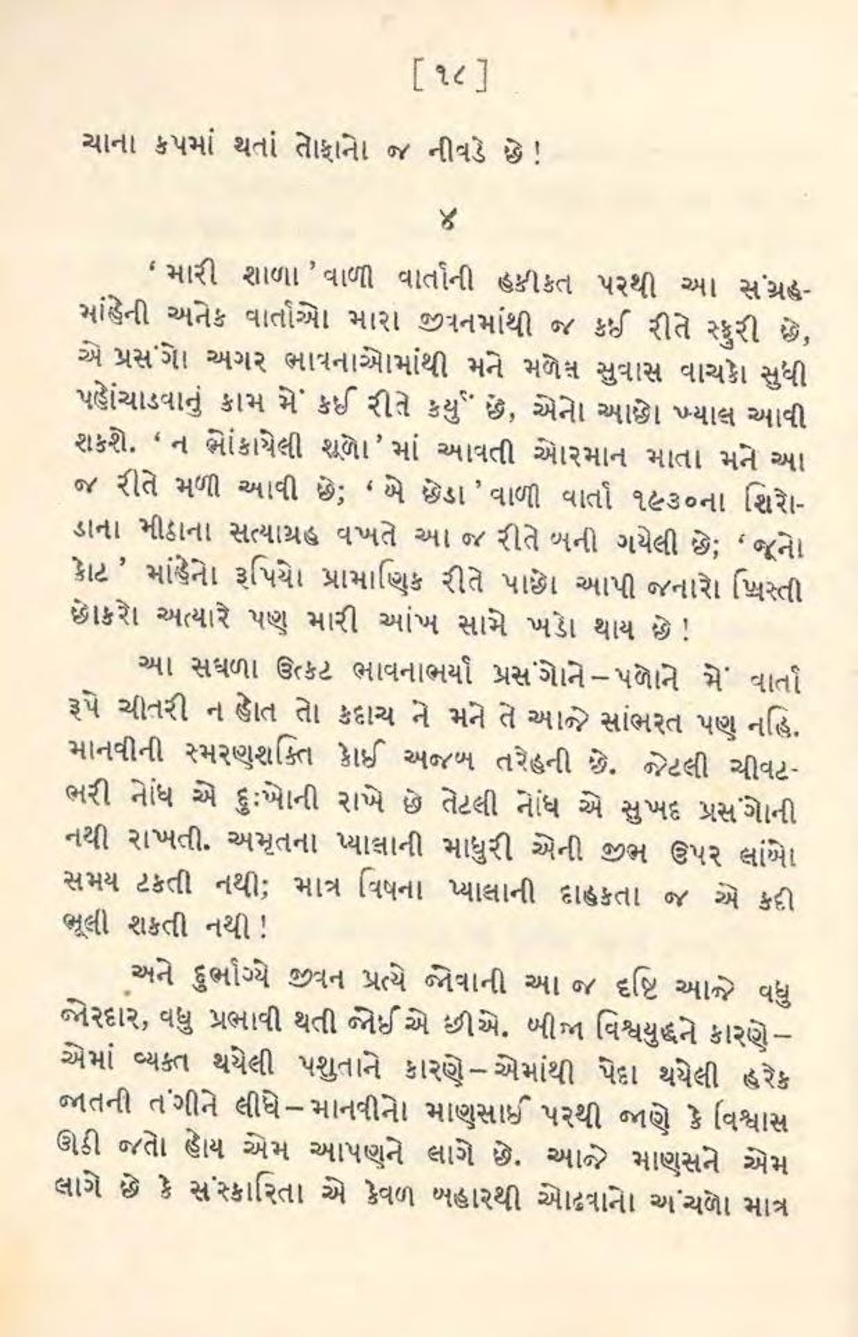 [ ૧૮ ]
ચાના કપમાં થતાં તોફાનો જ નીવડે છે !
૪
‘ મારી શાળા ’વાળી વાર્તાની હકીકત પરથી આ સંગ્રહ-
માંહેની અનેક વાર્તાઓ મારા જીવનમાંથી જ કઈ રીતે સ્ફુરી છે,
એ પ્રસંગો અગર ભાવનાઓમાંથી મને મળેલ સુવાસ વાચકો સુધી
પહોંચાડવાનું કામ મેં કઈ રીતે કર્યું છે, એનો આછો ખ્યાલ આવી
શકશે. ‘ ન ભોંકાયેલી શૂળો ’માં આવતી ઓરમાન માતા મને આ
જ રીતે મળી આવી છે; ‘ બે છેડા ’વાળી વાર્તા ૧૯૩૦ના શિરો-
ડાના મીઠાના સત્યાગ્રહ વખતે આ જ રીતે બની ગયેલી છે; ‘ જૂનો
કોટ ’ માંહેનો રૂપિયો પ્રામાણિક રીતે પાછો આપી જનારો ખ્રિસ્તી
છોકરો અત્યારે પણ મારી આંખ સામે ખડો થાય છે !
આ સઘળા ઉત્કટ ભાવનાભર્યા પ્રસંગોને – પળોને મેં વાર્તા
રૂપે ચીતરી ન હોત તો કદાચ ને મને તે આજે સાંભરત પણ નહિ.
માનવીની સ્મરણશક્તિ કોઈ અજબ તરેહની છે. જેટલી ચીવટ-
ભરી નોંધ એ દુઃખોની રાખે છે તેટલી નોંધ એ સુખદ પ્રસંગોની
નથી રાખતી. અમૃતના પ્યાલાની માધુરી એની જીભ ઉપર લાંબો
સમય ટકતી નથી; માત્ર વિષના પ્યાલાની દાહકતા જ એ કદી
ભૂલી શકતી નથી !
અને દુર્ભાગ્યે જીવન પ્રત્યે જોવાની આ જ દૃષ્ટિ આજે વધુ
જોરદાર, વધુ પ્રભાવી થતી જોઈએ છીએ. બીજા વિશ્વયુદ્ધને કારણે –
એમાં વ્યક્ત થયેલી પશુતાને કારણે – એમાંથી પેદા થયેલી હરેક
જાતની તંગીને લીધે – માનવીનો માણસાઈ પરથી જાણે કે વિશ્વાસ
ઊડી જતો હોય એમ આપણને લાગે છે. આજે માણસને એમ
લાગે છે કે સંસ્કારિતા એ કેવળ બહારથી ઓઢવાનો અંચળો માત્ર